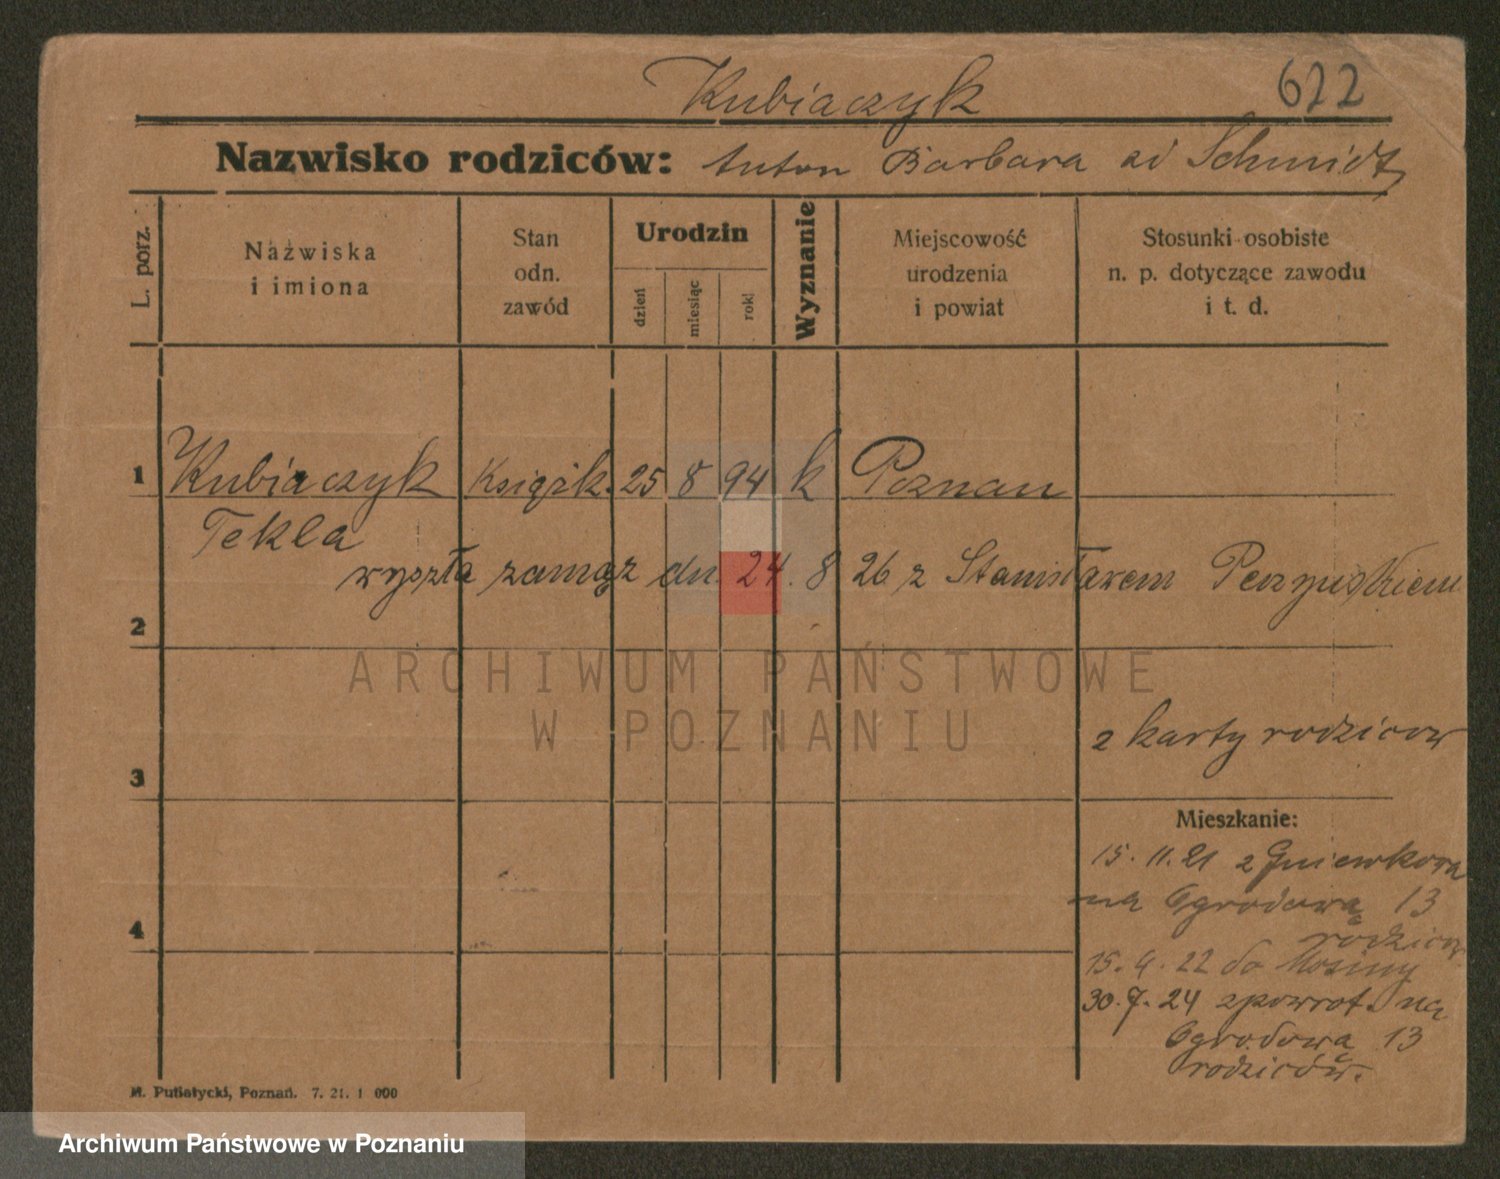 Kubiaczyk 622
Nazwisko rodziców: Anton Barbara zd Schmidt
L. porz.
Nazwiska
i imiona
Stan
odn.
zawód
Urodzin
dzień
miesiąc
rok
Wyznanie
Miejscowość
urodzenia
i powiat
Stosunki osobiste
n. p. dotyczące zawodu
i t. d.
1 Kubiaczyk Książk. 25 8 94 k Poznan
Tekla
wyszła zamąz dn. 24. 8 26 z Stanisławem
2
ARCHIWUM PAŃSTWOWE
W POZNANIU
z karty rodzicow
3
Mieszkanie:
15. 11. 21 z Gniewkowa
na Ogrodową 13
4
rodzicow
15. 4. 22 do Mosiny
30. 7. 24 zpowrot. na
Ogrodowa 13
rodziców.
M. Putiatycki, Poznań. 7. 21. 1 000
Archiwum Państwowe w Poznaniu